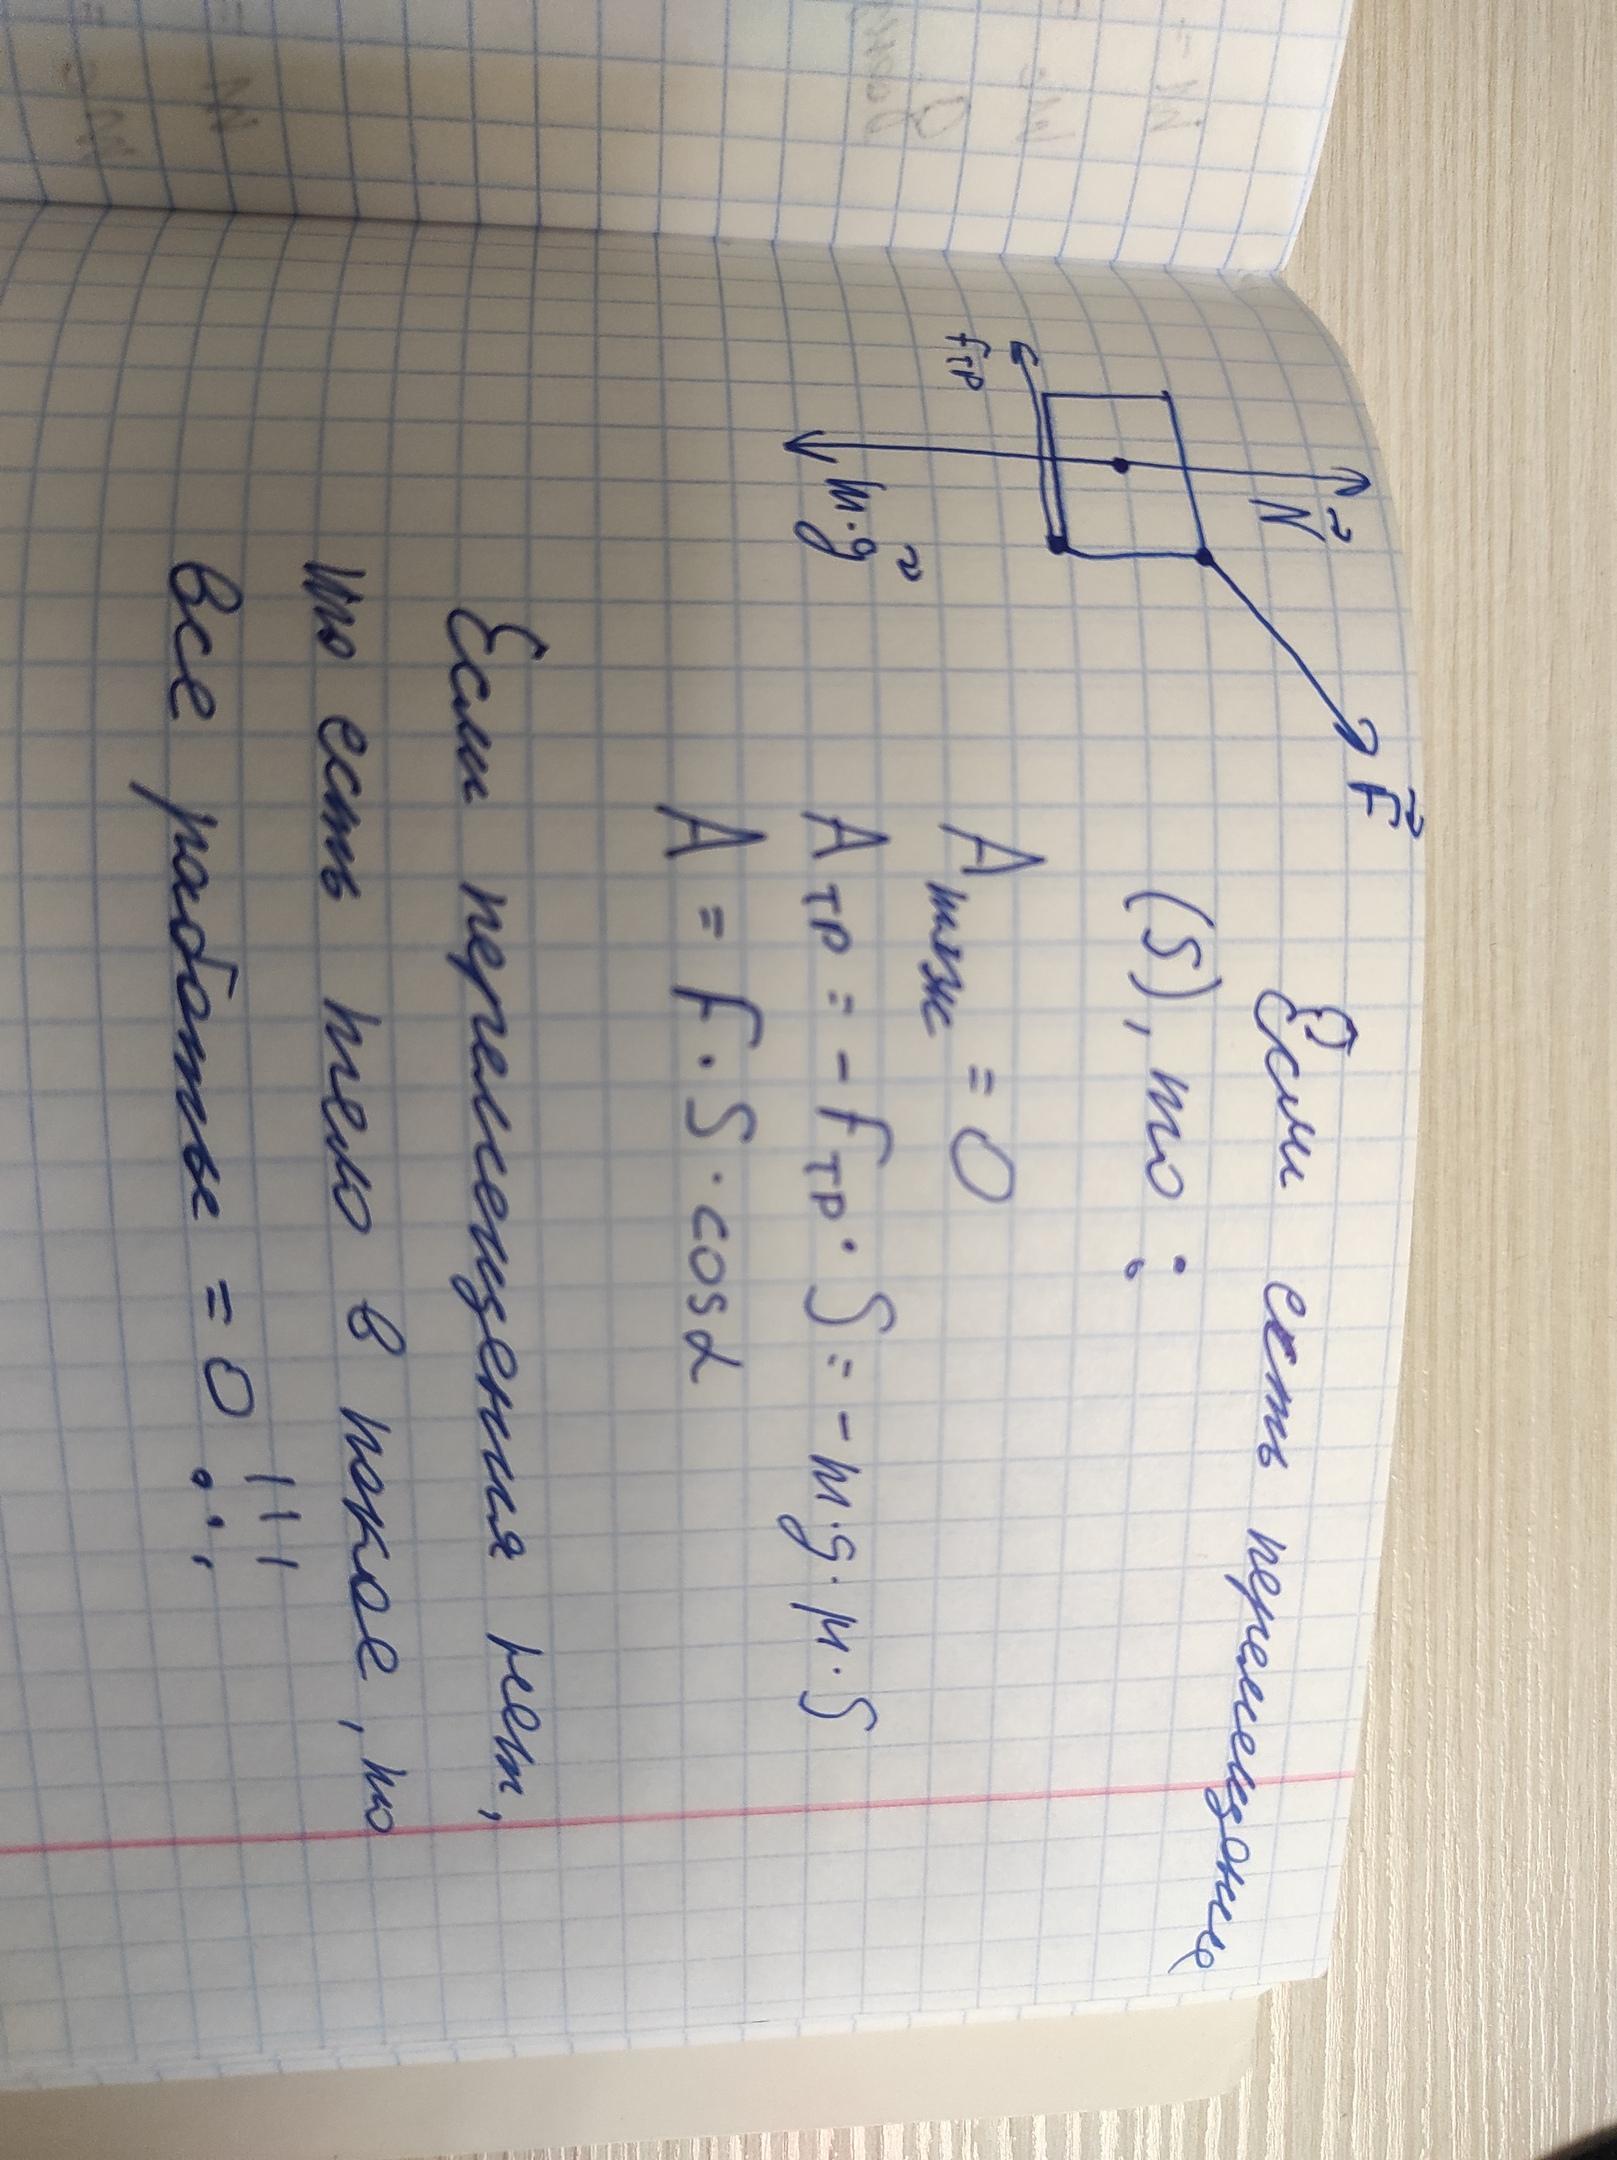 N
F
fтр
m·g
Если есть перемещение
(S), то :
Aтяж = 0
Aтр = - Fтр · S = - m·g·μ·S
A = F · S · cosα
Если перемещения нет,
то есть тело в покое, то
все работы = 0 !!!